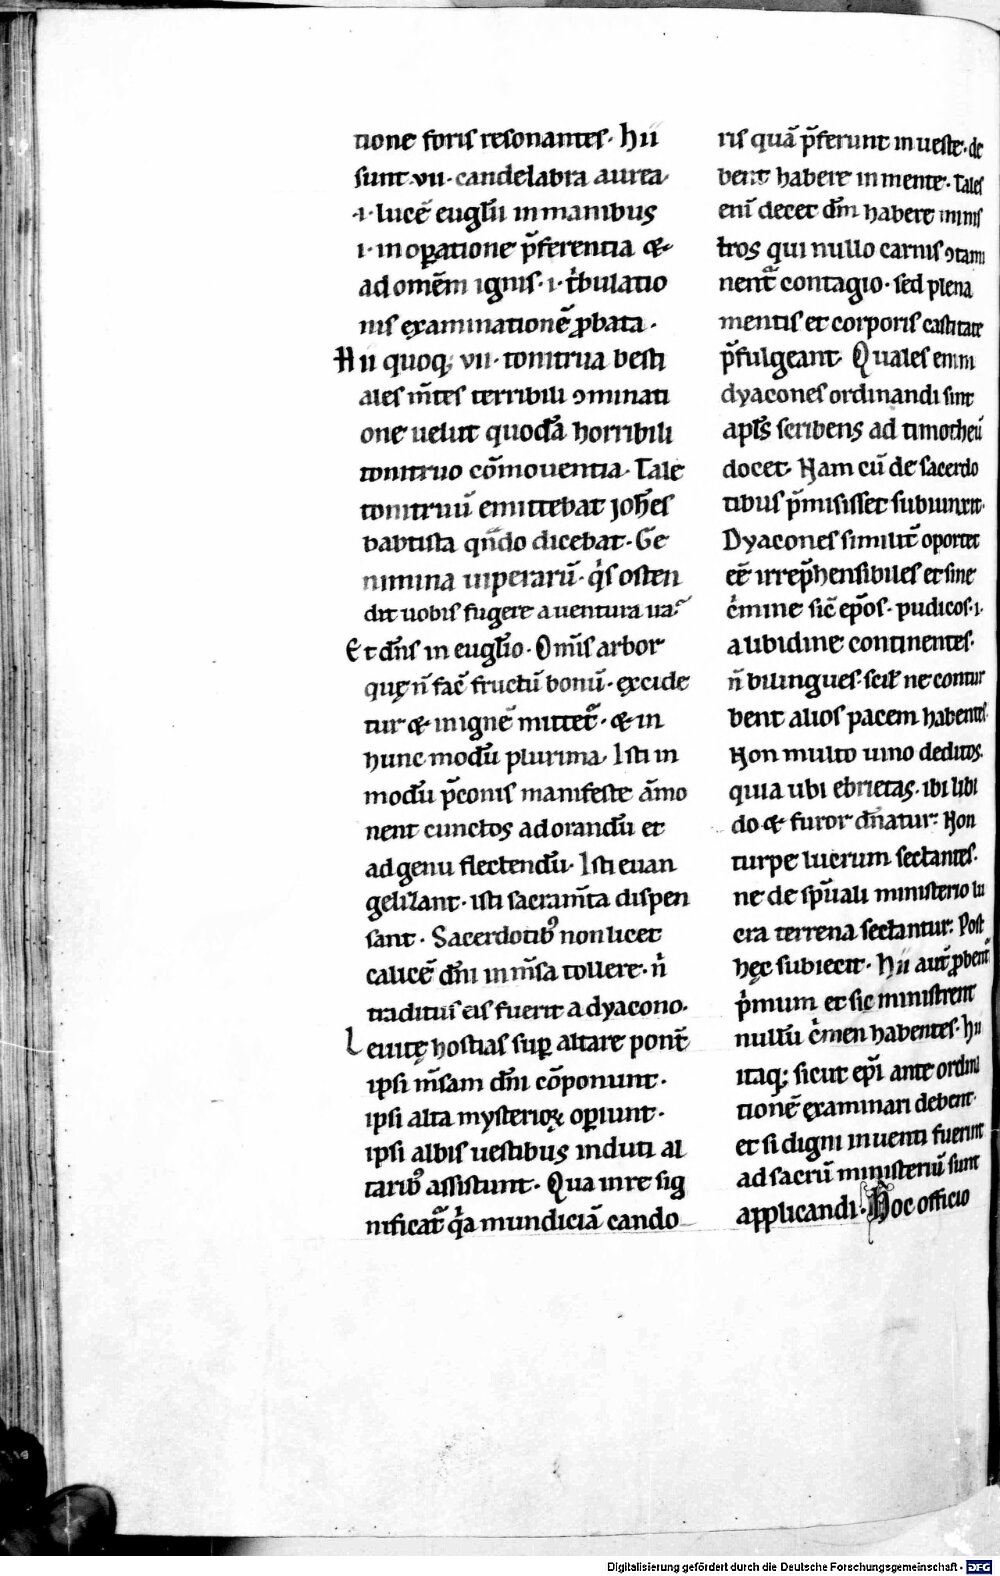 tione foris resonantes. hii
sunt .vii. candelabra aurea.
.i. lucē euglii in manibus
.i. in oꝑatione p̄ferentia &
ad omēm ignis .i. tͥbulatio
nis examinationē ꝓbata.
Hii quoq; vii. tonitrua besti
ales m̄tes terribili ↄminati
one uelut quodā horribili
tonitruo cōmouentia. Tale
tonitruū emittebat joh̄es
babtista qn̄do dicebat. Ge
nimina uiperarū. qͥs osten
dit uobis fugere a uentura ira?
Et dn̄s in euglio. Omīs arbor
quę n̄ fac̄ fructū bonū. excide
tur & in ignē mittet᷑. & in
hunc modū plurima. Isti in
modū p̄conis manifeste āmo
nent cunctos ad orandū et
ad genu flectendū. Isti euan
gelizant. isti sacram̄ta dispen
sant. Sacerdotibꝰ non licet
calicē dn̄i in m̄sa tollere. n̄
traditus eis fuerit a dyacono.
Leuitę hostias suꝑ altare ponūt
ipsi m̄sam dn̄i cōponunt.
ipsi alta mysterioꝝ oꝑiunt.
ipsi albis uestibus induti al
taribꝰ assistunt. Qua in re sig
nificat᷑ qͥa mundiciā cando
ris quā p̄ferunt in ueste. de
bent habere in mente. Tales
enī decet dn̄m habere minis
tros qui nullo carnis ↄtami
nent᷑ contagio. sed plena
mentis et corporis castitate
p̄fulgeant. Quales enim
dyacones ordinandi sint
apls̄ scribens ad timotheū
docet. Nam cū de sacerdo
tibus p̄misisset subiunxit.
Dyacones similit̄ oportet
eē irrep̄hensibiles et sine
cͥmine sic̄ ep̄os. pudicos .i.
a libidine continentes.
n̄ bilingues. scil̄ ne contur
bent alios pacem habentes.
Non multo uino deditos.
quia ubi ebrietas. ibi libi
do & furor dn̄atur. Non
turpe lucrum sectantes.
ne de sp̄uali ministerio lu
cra terrena sectantur. Post
hęc subiecit. Hii aut̄ ꝓbent᷑
pͥmum et sic ministrent
nullū cͥmen habentes. hii
itaq; sicut ep̄i ante ordina
tionē examinari debent.
et si digni inuenti fuerint
ad sacrū ministeriū sunt
applicandi. Hoc officio
Digitalisierung gefördert durch die Deutsche Forschungsgemeinschaft - DFG